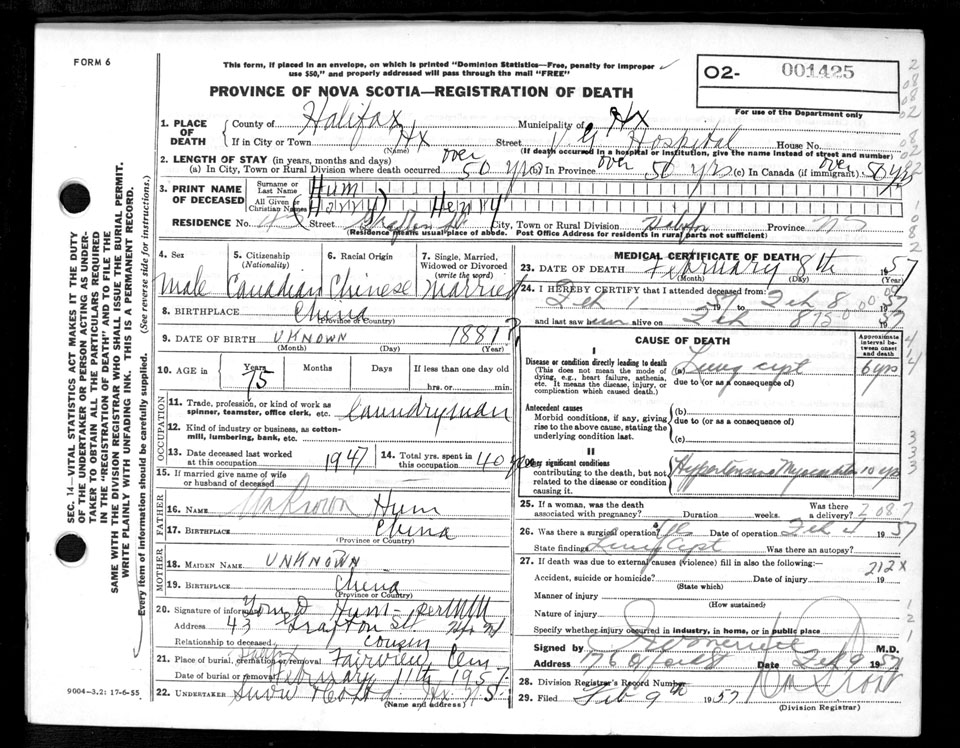 FORM 6
This form, if placed in an envelope, on which is printed "Dominion Statistics—Free, penalty for improper
use $50," and properly addressed will pass through the mail "FREE"
O2- 001425
For use of the Department only
PROVINCE OF NOVA SCOTIA—REGISTRATION OF DEATH
1. PLACE OF DEATH County of Halifax Municipality of Hx
If in City or Town Hx Street V G Hospital House No.
(Name) (If death occurred in a hospital or institution, give the name instead of street and number)
2. LENGTH OF STAY (in years, months and days)
(a) In City, Town or Rural Division where death occurred over 50 yrs (b) In Province over 50 yrs (c) In Canada (if immigrant) over 50 yrs
3. PRINT NAME OF DECEASED Surname or Last Name Hum
All Given or Christian Names (Harry) Henry
RESIDENCE No. 43 Street Grafton St City, Town or Rural Division Halifax Province NS
(Residence means usual place of abode. Post Office Address for residents in rural parts not sufficient)
4. Sex 5. Citizenship (Nationality) 6. Racial Origin 7. Single, Married, Widowed or Divorced (write the word)
Male Canadian Chinese Married
8. BIRTHPLACE China
(Province or Country)
9. DATE OF BIRTH UKNOWN 1881?
(Month) (Day) (Year)
10. AGE in Years Months Days If less than one day
75 hrs. or min.
OCCUPATION
11. Trade, profession, or kind of work as spinner, teamster, office clerk, etc. Laundryman
12. Kind of industry or business, as cotton-mill, lumbering, bank, etc.
13. Date deceased last worked at this occupation 1947 14. Total yrs. spent in this occupation 40 yrs
15. If married give name of wife or husband of deceased Unknown
FATHER
16. Name Hum
17. Birthplace China
(Province or Country)
MOTHER
18. Maiden Name UNKNOWN
19. Birthplace China
(Province or Country)
20. Signature of informant Tom D Hum - per
Address 43 Grafton St Hfx NS
Relationship to deceased cousin
21. Place of burial, cremation or removal Fairview Cem
Date of burial or removal February 11th 1957
22. Undertaker Snow & Co Ltd Hx N.S.
(Name and address)
9004-3.2: 17-6-55
MEDICAL CERTIFICATE OF DEATH
23. DATE OF DEATH February 8th 1957
24. I HEREBY CERTIFY that I attended deceased from:
Feb 1 1957 to Feb 8 1957
and last saw him alive on Feb 8 1957
CAUSE OF DEATH Approximate interval between onset and death
I
Disease or condition directly leading to death
(This does not mean the mode of dying, e.g., heart failure, asthenia, etc. It means the disease, injury, or complication which caused death.)
(a) Lung cyst 6 yrs
due to (or as a consequence of)
Antecedent causes
Morbid conditions, if any, giving rise to the above cause, stating the underlying condition last.
(b)
due to (or as a consequence of)
(c)
II
Other significant conditions
contributing to the death, but not related to the disease or condition causing it.
Hypertensive 10 yrs
25. If a woman, was the death associated with pregnancy? Duration weeks. Was there a delivery?
26. Was there a surgical operation? Date of operation Feb 1957
State findings Lung Cyst Was there an autopsy?
27. If death was due to external causes (violence) fill in also the following:
212X
Accident, suicide or homicide? Date of injury 19
(State which)
Manner of injury
(How sustained)
Nature of injury
Specify whether injury occurred in industry, in home, or in public place
Signed by M.D.
Address 176 Date Feb 9 1957
28. Division Registrar's Record Number
29. Filed Feb 9th 1957
(Division Registrar)
SEC. 14—VITAL STATISTICS ACT MAKES IT THE DUTY
OF THE UNDERTAKER OR PERSON ACTING AS UNDER-
TAKER TO OBTAIN ALL THE PARTICULARS REQUIRED
IN THE "REGISTRATION OF DEATH" AND TO FILE THE
SAME WITH THE DIVISION REGISTRAR WHO SHALL ISSUE THE BURIAL PERMIT.
WRITE PLAINLY WITH UNFADING INK. THIS IS A PERMANENT RECORD.
Every item of information should be carefully supplied. (See reverse side for instructions.)